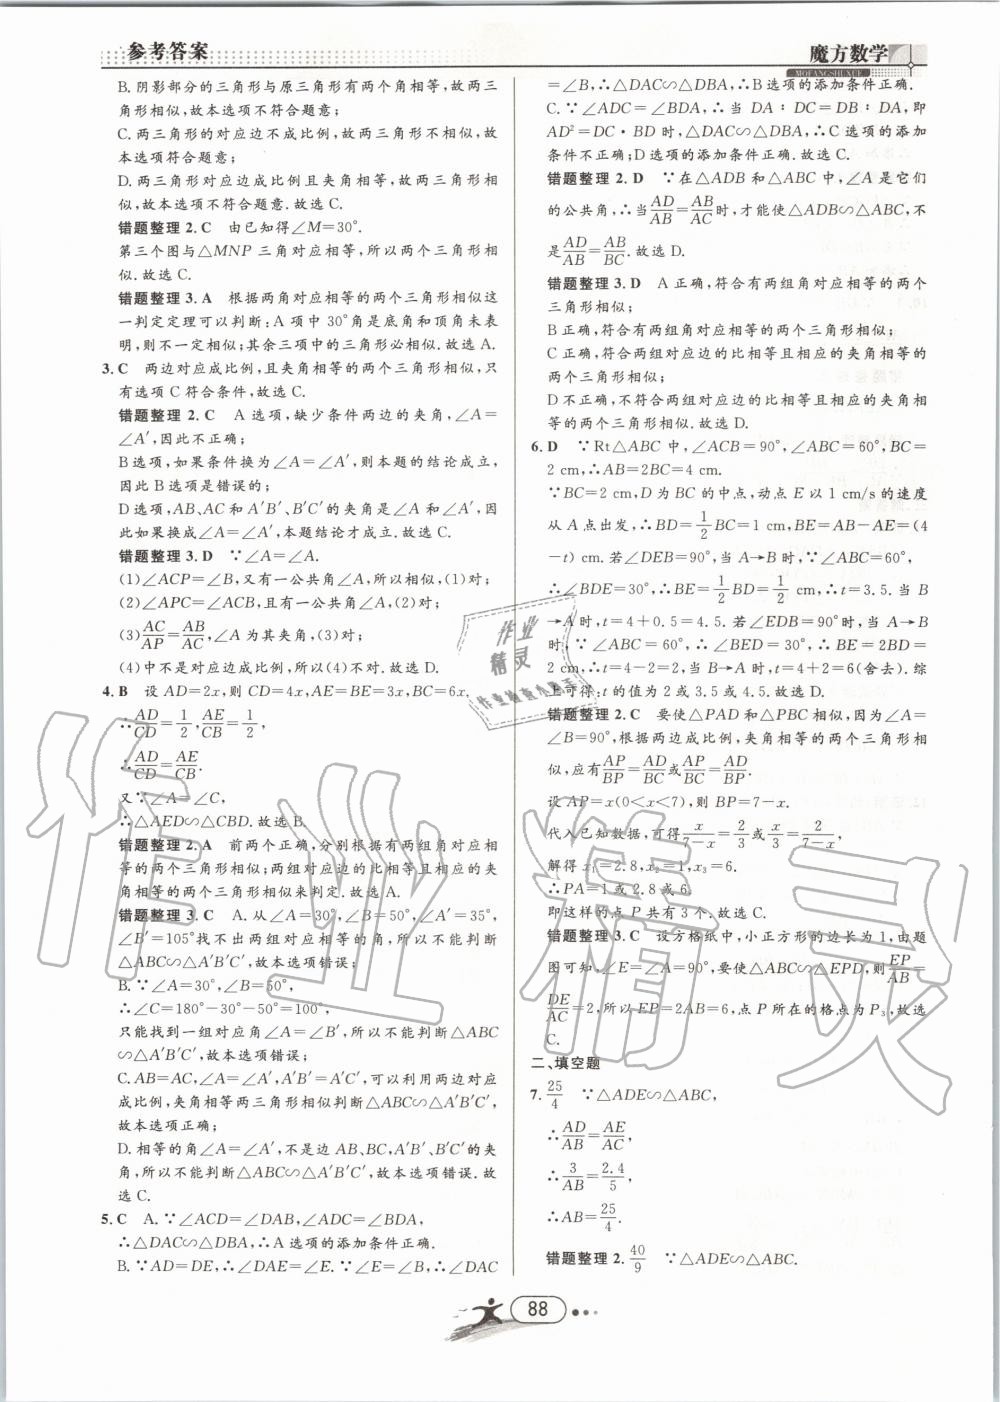 参考答案
魔方数学
MOFANGSHUXUE
B. 阴影部分的三角形与原三角形有两个角相等,故两三
角形相似,故本选项不符合题意;
C. 两三角形的对应边不成比例,故两三角形不相似,故
本选项符合题意;
D. 两三角形对应边成比例且夹角相等,故两三角形相
似,故本选项不符合题意. 故选 C.
错题整理 2. C 由已知得∠M=30°.
第三个图与△MNP 三角对应相等,所以两个三角形相
似. 故选 C.
错题整理 3. A 根据两角对应相等的两个三角形相似这
一判定定理可以判断:A 项中 30°角是底角和顶角未表
明,则不一定相似;其余三项中的三角形必相似. 故选 A.
3. C 两边对应成比例,且夹角相等的两个三角形相似,只
有选项 C 符合条件,故选 C.
错题整理 2. C A 选项,缺少条件两边的夹角,∠A=
∠A′,因此不正确;
B 选项,如果条件换为∠A=∠A′,则本题的结论成立,
因此 B 选项是错误的;
D 选项,AB、AC 和 A′B′、B′C′的夹角是∠A 和∠A′,因
此如果换成∠A=∠A′,本题结论才成立. 故选 C.
错题整理 3. D ∵∠A=∠A.
(1)∠ACP=∠B,又有一公共角∠A,所以相似,(1)对;
(2)∠APC=∠ACB,且有一公共角∠A,(2)对;
(3)AC/AP=AB/AC,∠A 为其夹角,(3)对;
(4)中不是对应边成比例,所以(4)不对. 故选 D.
4. B 设 AD=2x,则 CD=4x,AE=BE=3x,BC=6x.
∴AD/CD=1/2,AE/CB=1/2,
∴AD/CD=AE/CB.
又∵∠A=∠C,
∴△AED∽△CBD. 故选 B.
错题整理 2. A 前两个正确,分别根据有两组角对应相
等的两个三角形相似;两组对应边的比相等且相应的夹角
相等的两个三角形相似来判定. 故选 A.
错题整理 3. C A. 从∠A=30°,∠B=50°,∠A′=35°,
∠B′=105°找不出两组对应相等的角,所以不能判断
△ABC∽△A′B′C′,故本选项错误;
B. ∵∠A=30°,∠B=50°,
∴∠C=180°-30°-50°=100°,
只能找到一组对应角∠A=∠B′,所以不能判断△ABC
∽△A′B′C′,故本选项错误;
C. AB=AC,∠A=∠A′,A′B′=A′C′,可以利用两边对应
成比例,夹角相等两三角形相似判断△ABC∽△A′B′C′,
故本选项正确;
D. 相等的角∠A=∠A′,不是边 AB、BC,A′B′、B′C′的夹
角,所以不能判断△ABC∽△A′B′C′,故本选项错误. 故
选 C.
5. C A. ∵∠ACD=∠DAB,∠ADC=∠BDA,
∴△DAC∽△DBA,∴A 选项的添加条件正确.
B. ∵AD=DE,∴∠DAE=∠E. ∵∠E=∠B,∴∠DAC
=∠B,∴△DAC∽△DBA,∴B 选项的添加条件正确.
C. ∵∠ADC=∠BDA,∴当 DA∶DC=DB∶DA,即
AD²=DC·BD 时,△DAC∽△DBA,∴C 选项的添加
条件不正确;D 选项的添加条件正确. 故选 C.
错题整理 2. D ∵在△ADB 和△ABC 中,∠A 是它们
的公共角,∴当AD/AB=AB/AC时,才能使△ADB∽△ABC,不
是AD/AB=AB/BC. 故选 D.
错题整理 3. D A 正确,符合有两组角对应相等的两个
三角形相似;
B 正确,符合有两组角对应相等的两个三角形相似;
C 正确,符合两组对应边的比相等且相应的夹角相等的
两个三角形相似;
D 不正确,不符合两组对应边的比相等且相应的夹角相
等的两个三角形相似. 故选 D.
6. D ∵Rt△ABC 中,∠ACB=90°,∠ABC=60°,BC=
2 cm,∴AB=2BC=4 cm.
∵BC=2 cm,D 为 BC 的中点,动点 E 以 1 cm/s 的速度
从 A 点出发,∴BD=1/2BC=1 cm,BE=AB-AE=(4
-t) cm. 若∠DEB=90°,当 A→B 时,∵∠ABC=60°,
∴∠BDE=30°,∴BE=1/2BD=1/2 cm,∴t=3.5. 当 B
→A 时,t=4+0.5=4.5. 若∠EDB=90°时,当 A→B
时,∵∠ABC=60°,∴∠BED=30°,∴BE=2BD=
2 cm,∴t=4-2=2,当 B→A 时,t=4+2=6(舍去). 综
上可得:t 的值为 2 或 3.5 或 4.5. 故选 D.
错题整理 2. C 要使△PAD 和△PBC 相似,因为∠A=
∠B=90°,根据两边对应成比例,夹角相等两个三角形相
似,应有AP/BP=AD/BC或AP/BC=AD/BP.
设 AP=x(0<x<7),则 BP=7-x.
代入已知数据,可得x/7-x=2/3或x/3=2/7-x,
解得 x₁=2.8,x₂=1,x₃=6.
∴PA=1 或 2.8 或 6.
即这样的点 P 共有 3 个. 故选 C.
错题整理 3. C 设方格纸中,小正方形的边长为 1,由题
图可知,∠E=∠A=90°,要使△ABC∽△EPD,则EP/AB=
DE/AC=2,所以 EP=2AB=6,点 P 所在的格点为 P₃,故选
C.
二、填空题
7. 25/4 ∵△ADE∽△ABC,
∴AD/AB=AE/AC,
∴3/AB=2.4/5,
∴AB=25/4.
错题整理 2. 40/9 ∵△ADE∽△ABC.
88
作业
精灵
作业精灵